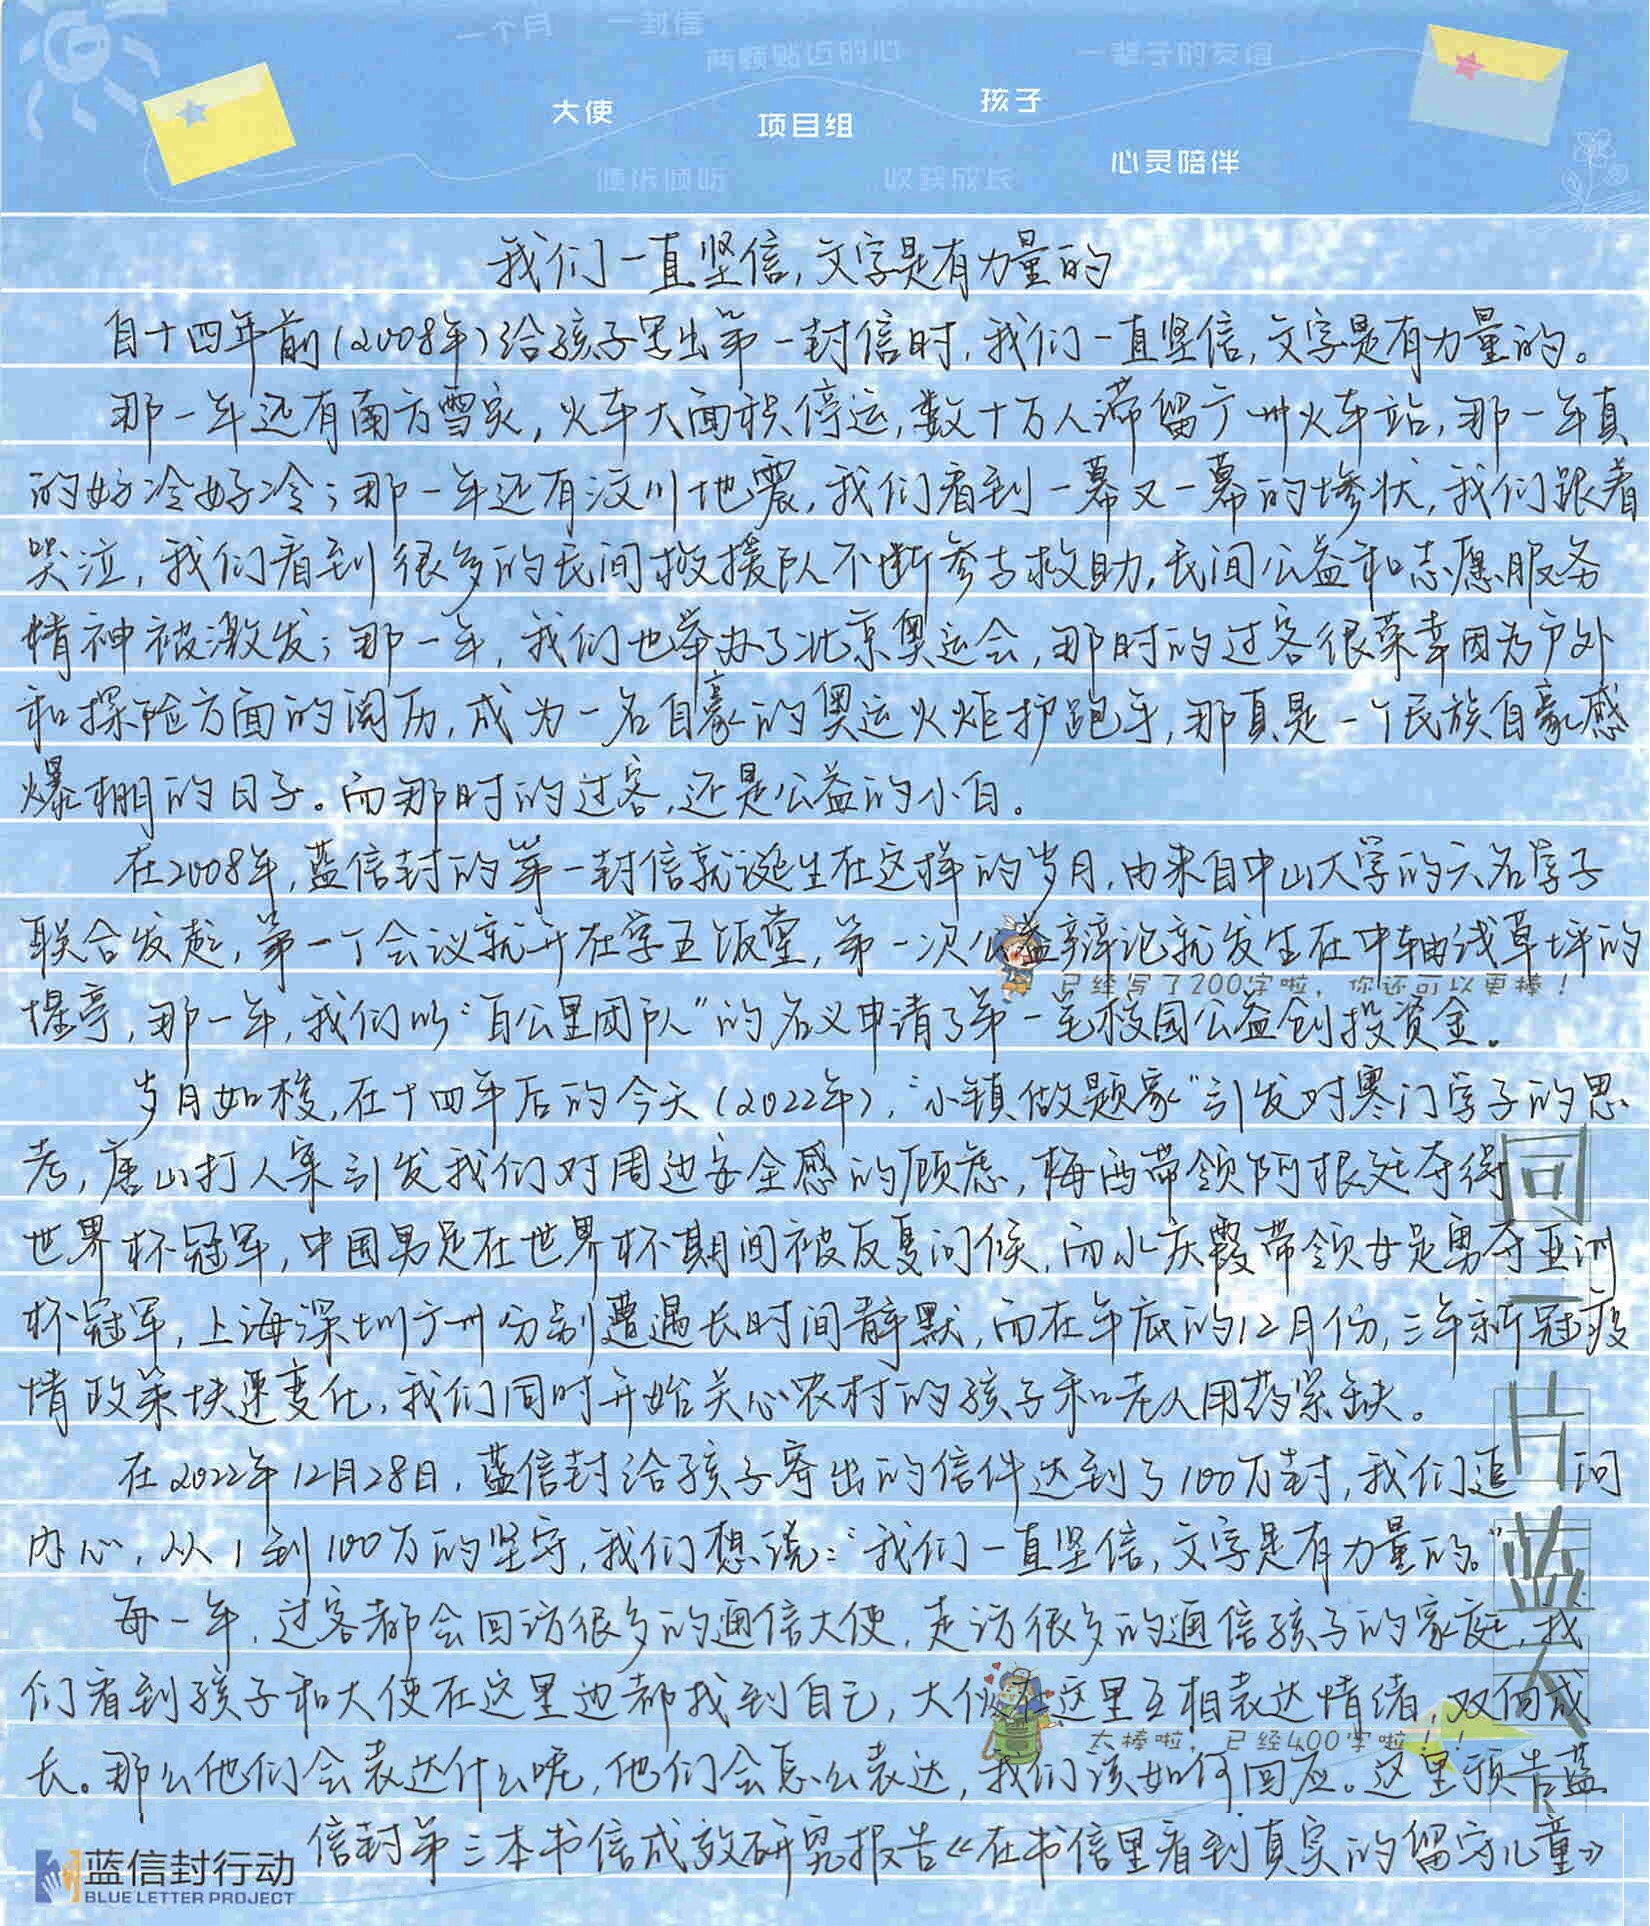 一个月 一封信
两颗贴近的心 一辈子的友谊
大使 项目组 孩子
倾诉倾听 收获成长 心灵陪伴
我们一直坚信,文字是有力量的
自十四年前(2008年)给孩子写出第一封信时,我们一直坚信,文字是有力量的。
那一年还有南方雪灾,火车大面积停运,数十万人滞留广州火车站,那一年真
的好冷好冷;那一年还有汶川地震,我们看到一幕又一幕的惨状,我们跟着
哭泣,我们看到很多的民间救援队不断参与救助,民间公益和志愿服务
精神被激发;那一年,我们也举办了北京奥运会,那时的过客很荣幸因为户外
和探险方面的阅历,成为一名自豪的奥运火炬护跑手,那真是一个民族自豪感
爆棚的日子。而那时的过客,还是公益的小白。
在2008年,蓝信封的第一封信就诞生在这样的岁月,由来自中山大学的六名学子
联合发起,第一个会议就开在学五饭堂,第一次公益辩论就发生在中轴线草坪的
已经写了200字啦,你还可以更棒!
惺亭,那一年,我们以“百公里团队”的名义申请了第一笔校园公益创投资金。
岁月如梭,在十四年后的今天(2022年),“小镇做题家”引发对寒门学子的思
考,唐山打人案引发我们对周边安全感的顾虑,梅西带领阿根廷夺得
世界杯冠军,中国男足在世界杯期间被反复问候,而水庆霞带领女足勇夺亚洲
杯冠军,上海深圳广州分别遭遇长时间静默,而在年底的12月份,三年新冠疫
情政策快速变化,我们同时开始关心农村的孩子和老人用药紧缺。
在2022年12月28日,蓝信封给孩子寄出的信件达到了100万封,我们追问
内心,从1到100万的坚守,我们想说:“我们一直坚信,文字是有力量的。”
每一年,过客都会回访很多的通信大使,走访很多的通信孩子的家庭,我
们看到孩子和大使在这里边都找到自己,大伙在这里互相表达情绪,双向成
太棒啦,已经400字啦!!
长。那么他们会表达什么呢,他们会怎么表达,我们该如何回应。这里预告蓝
信封第三本书信成效研究报告《在书信里看到真实的留守儿童》
同一片蓝天下
蓝信封行动
BLUE LETTER PROJECT